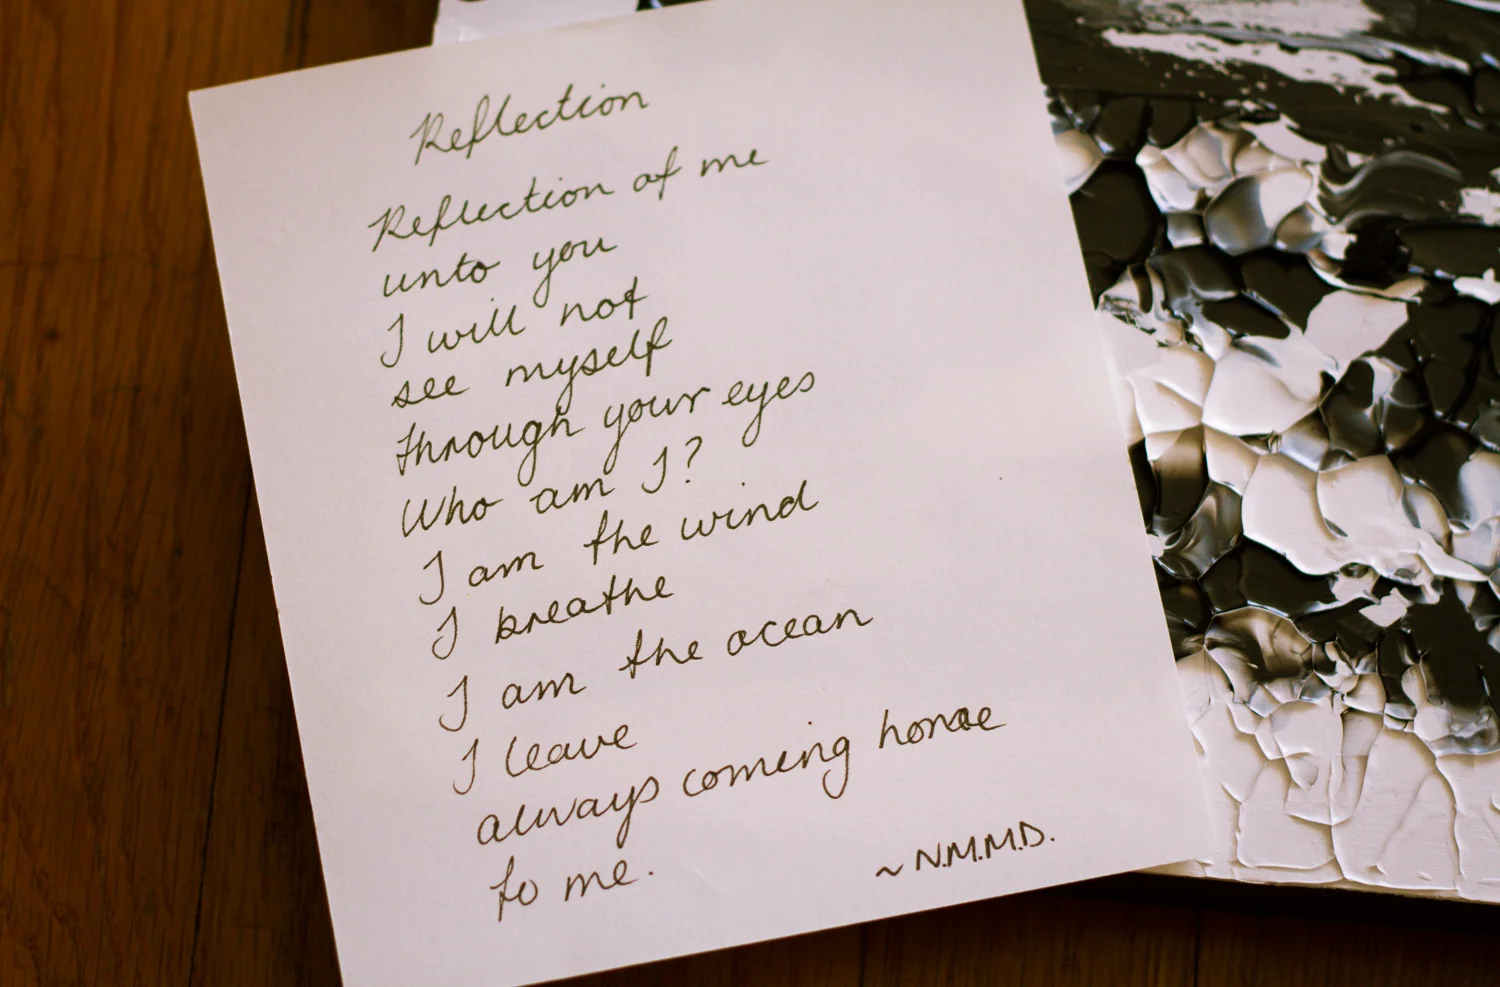 Reflection
Reflection of me
unto you
I will not
see myself
through your eyes
Who am I?
I am the wind
I breathe
I am the ocean
I leave
always coming home
to me.
~ N.M.M.D.